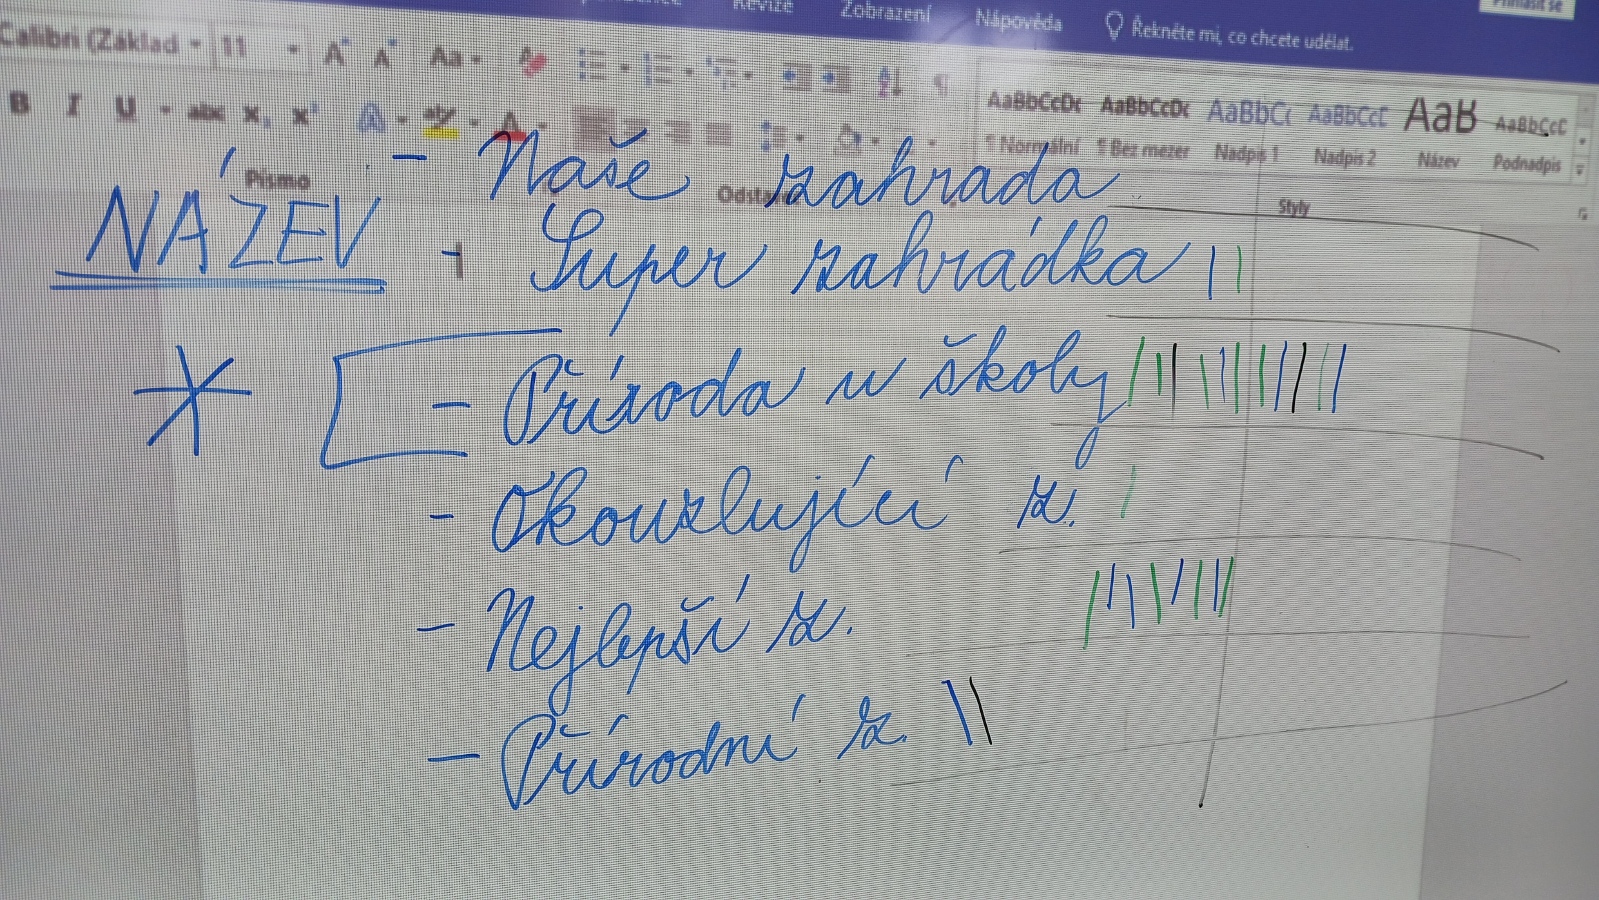 Revize Zobrazení Nápověda Řekněte mi, co chcete udělat. Přihlásit se
Calibri (Základ 11 A A Aa
B I U abc x, x² A aby A
AaBbCcDc AaBbCcDc AaBbC AaBbCcD AaB AaBbCcC
¶ Normální ¶ Bez mezer Nadpis 1 Nadpis 2 Název Podnadpis
Písmo Styly
NÁZEV
- Naše zahrada
- Super zahrádka
- Příroda u školy
- Okouzlující z.
- Nejlepší z.
- Přírodní z.